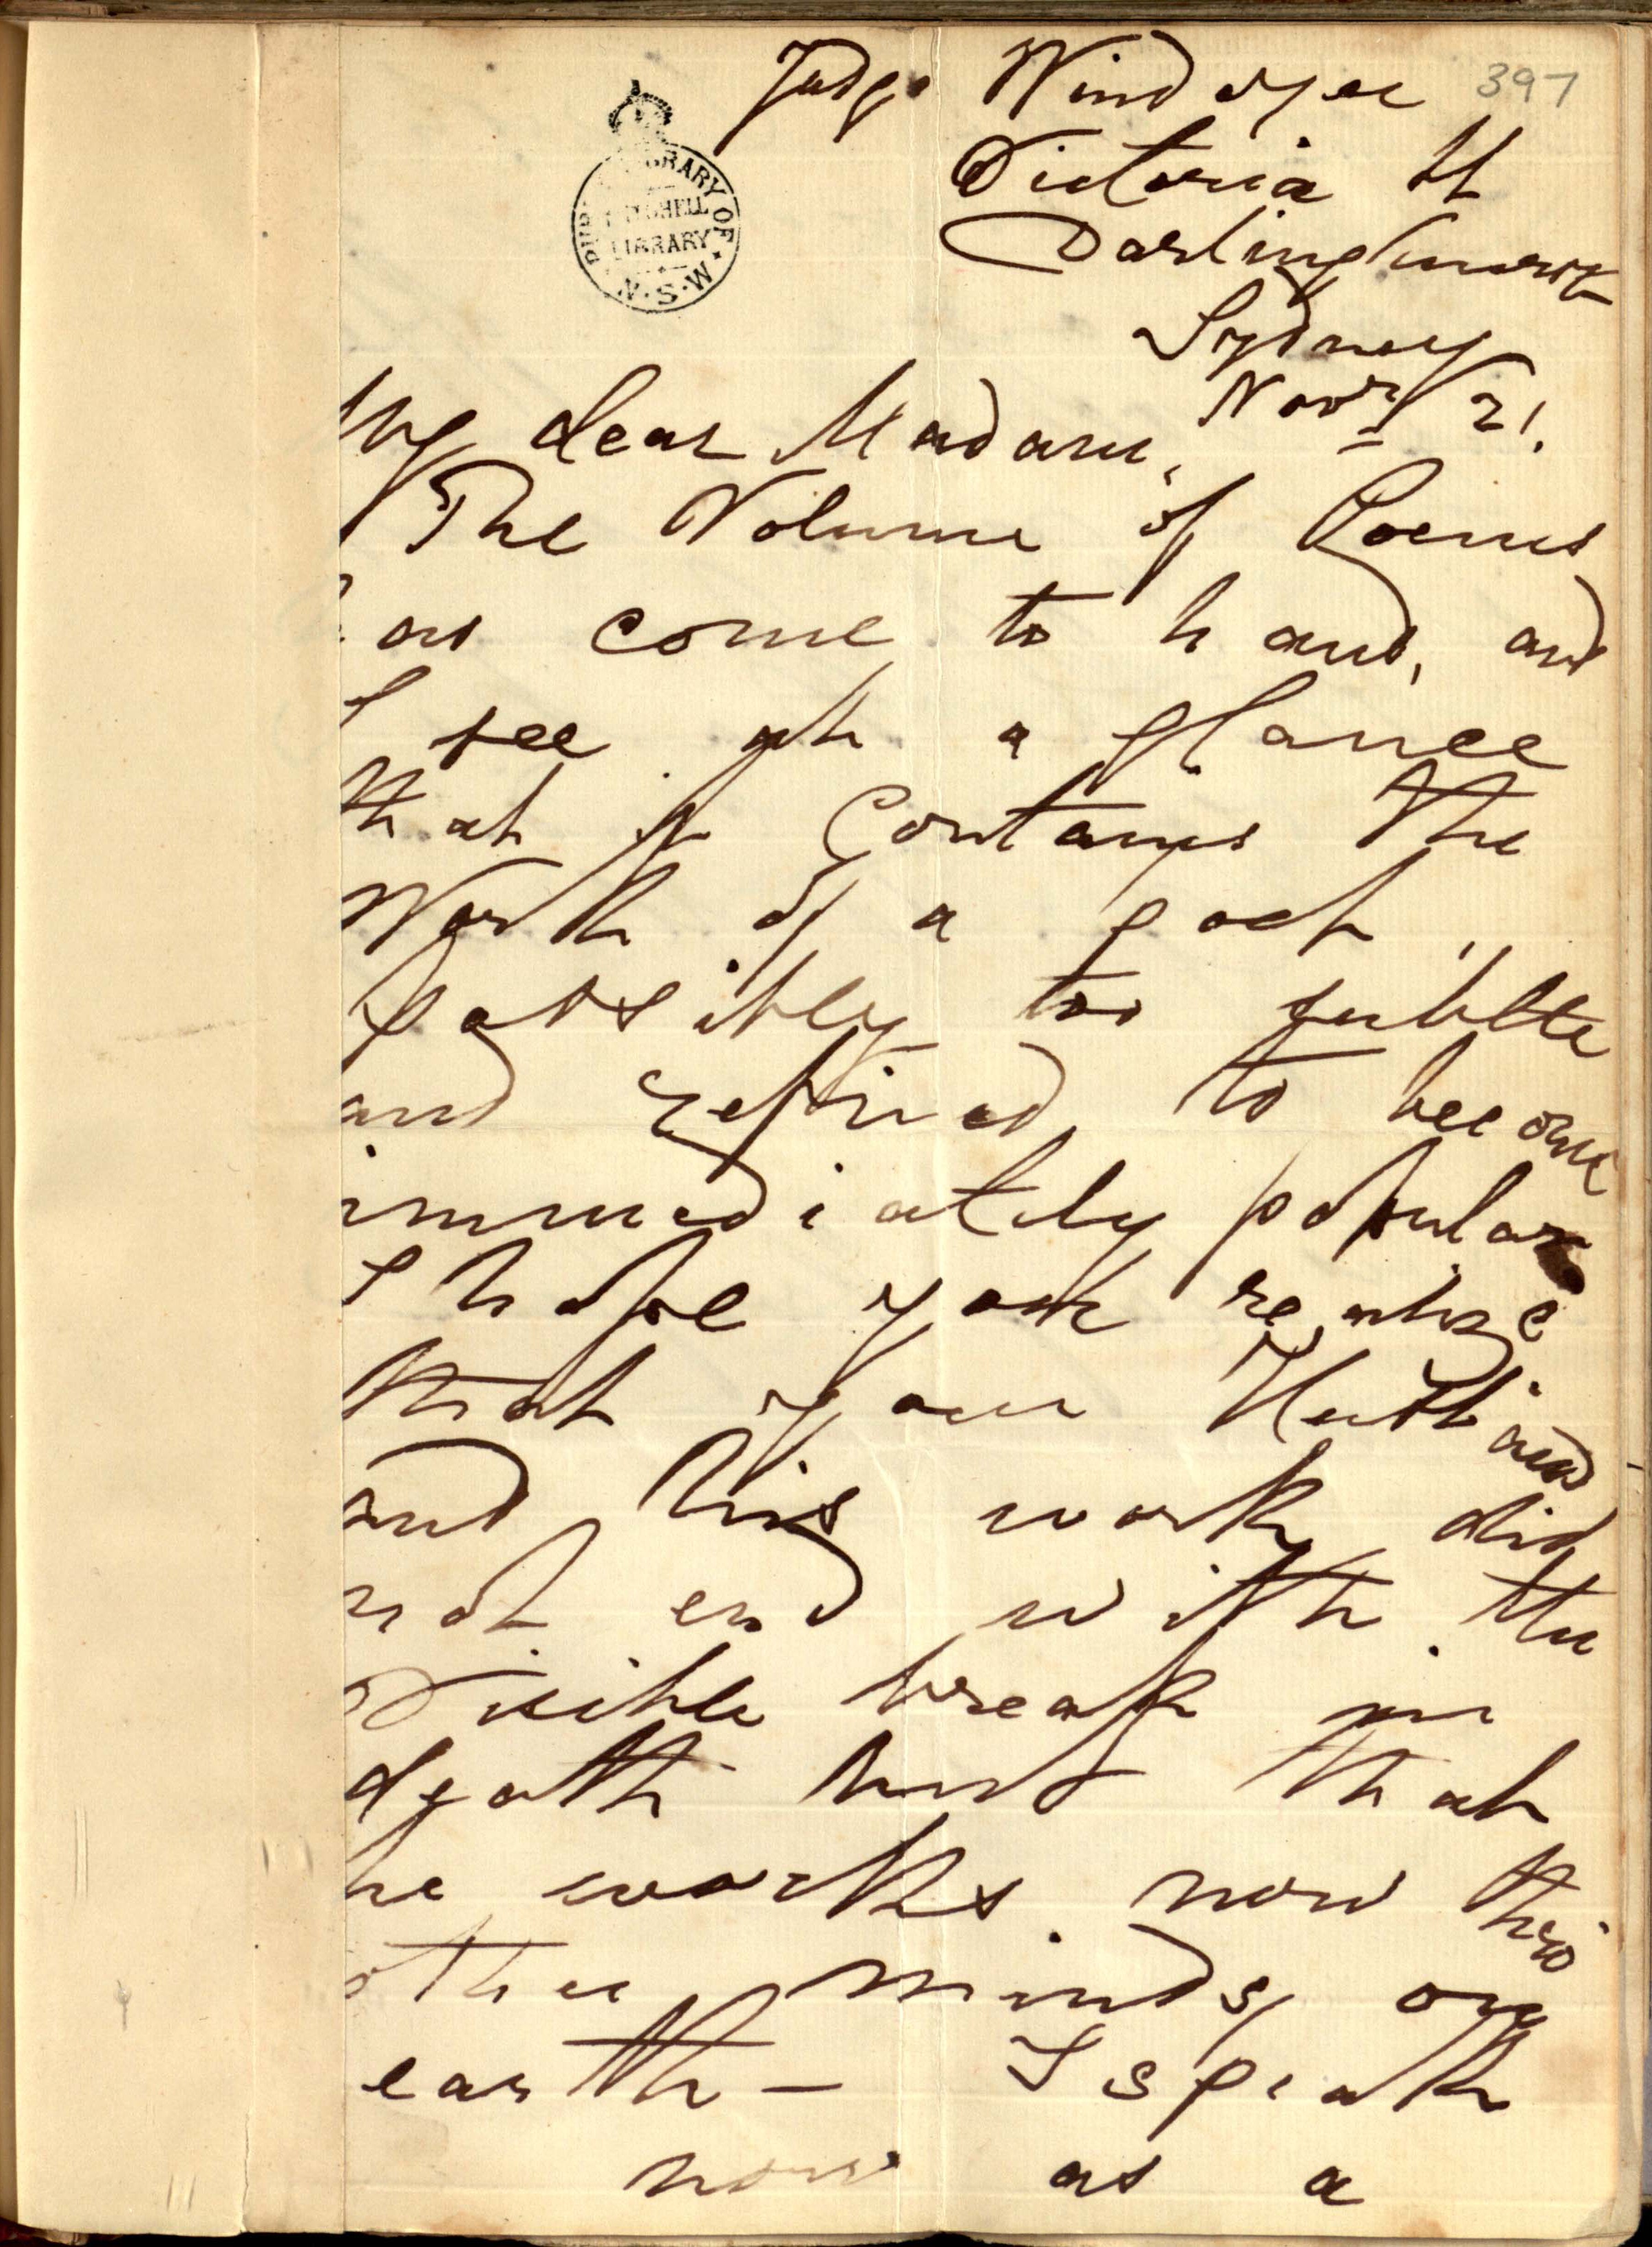 Judge Windeyer 397
Victoria St
Darlinghurst
Sydney
Novr 21.
PUBLIC LIBRARY OF N.S.W.
MITCHELL
LIBRARY
My dear Madam,
The Volume of Poems
has come to hand, and
I see at a glance
that it Contains the
Work of a poet,
possibly too subtle
and refined to become
immediately popular
I hope you realize
that your Husband
and his work did
not end with the
Visible break in
death but that
he works now thro'
other minds on
earth — I speak
now as a